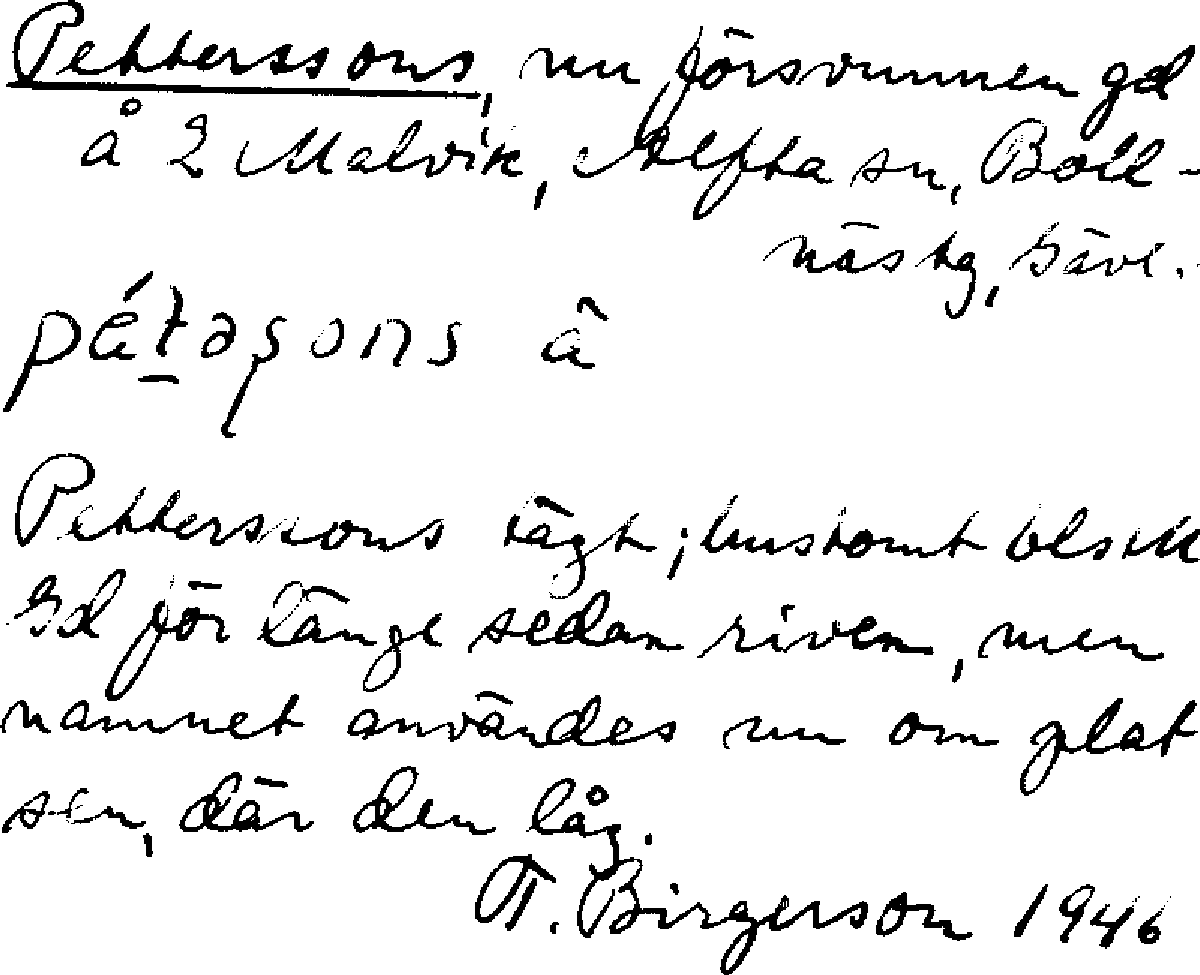 Pettersons, nu försvunnen gd
å 2 Malvik, Alfta sn, Boll-
näs tg, Gävl.
pétaşons ã
Petterssons tägt; hustomt
Gd för länge sedan riven, men
namnet användes nu om plat
sen, där den låg.
T. Birgerson 1946